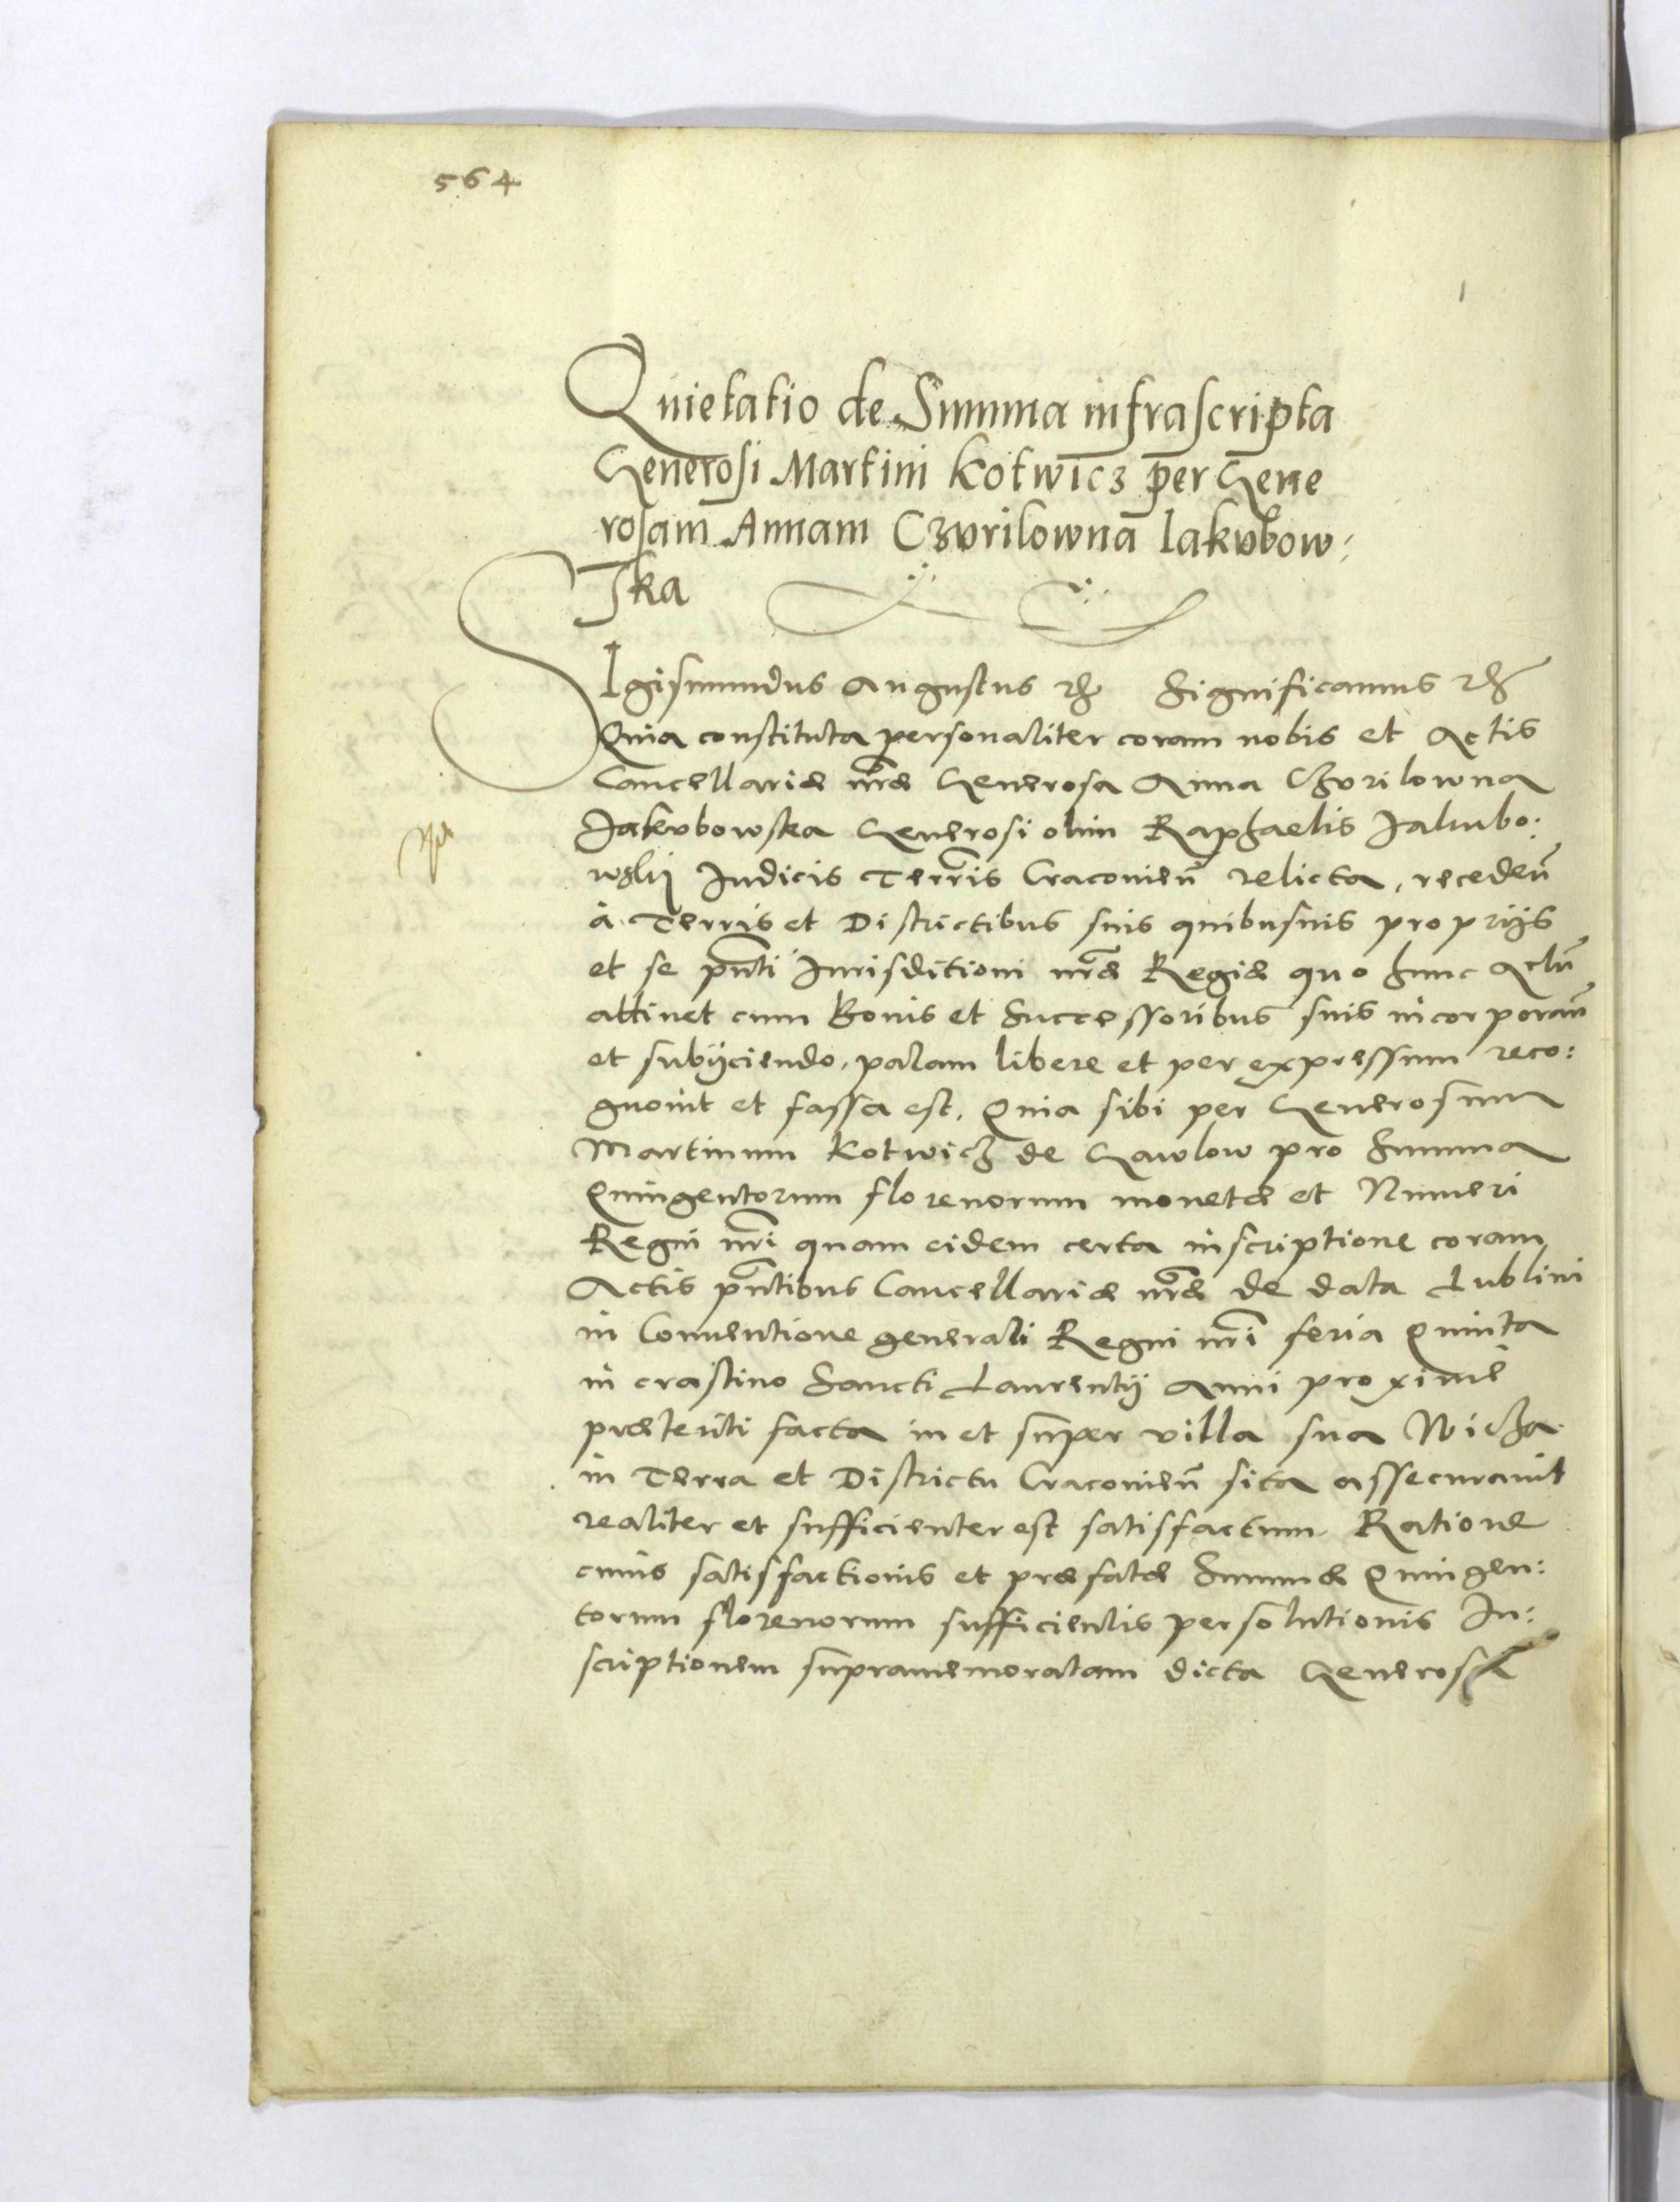 564
Quietatio de Summa infrascripta
Generosi Martini Kotwicz per Gene
rosam Annam Czvrilowna Iakvbow:
ska
SIgismundus Augustus etc Significamus etc
Quia constituta personaliter coram nobis et Actis
Cancellariæ nr̃æ Generosa Anna Czvrilowna
Jakvbowska Generosi olim Raphaelis Jakubo:
wskij Judicis Terrr̃is Cracovieñ relicta, recedeñ
à Terris et Districtibus suis quibusuis proprijs
et se pñti Jurisditioni nr̃æ Regiæ quo hunc Actũ
attinet cum Bonis et Successoribus suis incorporañ
et subijciendo, palam libere et per expressum reco:
gnouit et fassa est, Quia sibi per Generosum
Martinum Kotwicz de Gawlow pro Summa
Quingentorum florenorum monetæ et Numeri
Regni nr̃i quam eidem certa inscriptione coram
Actis pñtibus Cancellariæ nr̃æ de data Lublini
in Conuentione generali Regni nr̃i feria Quinta
in crastino Sancti Laurentij Anni proximè
præteriti facta in et super villa sua Wicha
in Terra et Districtu Cracovieñ sita assecurauit
realiter et sufficienter est satisfactum. Ratione
cuius satisfactionis et præfatæ Summæ Quingen:
torum florenorum sufficientis persolutionis In:
scriptionem supramemoratam dicta Generosa